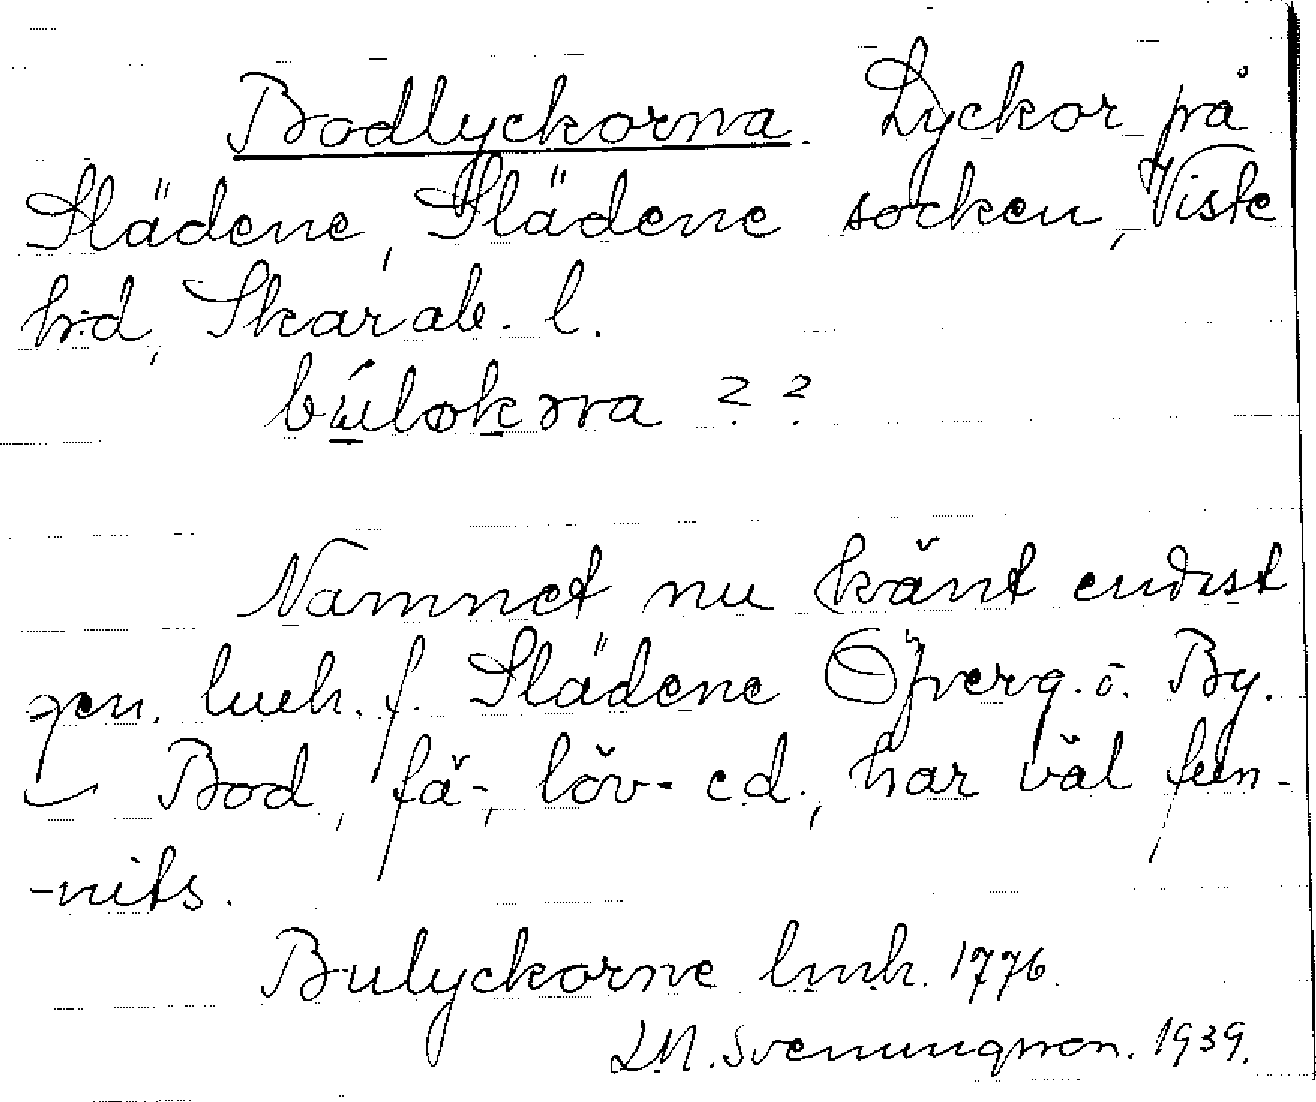 Bodlyckorna. Lyckor på
Slädene, Slädene socken, Viste
hd, Skarab. l.
búløkɔrna ? ?
Namnet nu känt endast
gen. lmh. f. Slädene Öfverg. o. By.
Bod, fä-, löv- e.d., har väl fun-
-nits.
Bulyckorne lmh. 1776.
L.M. Svenungsson. 1939.